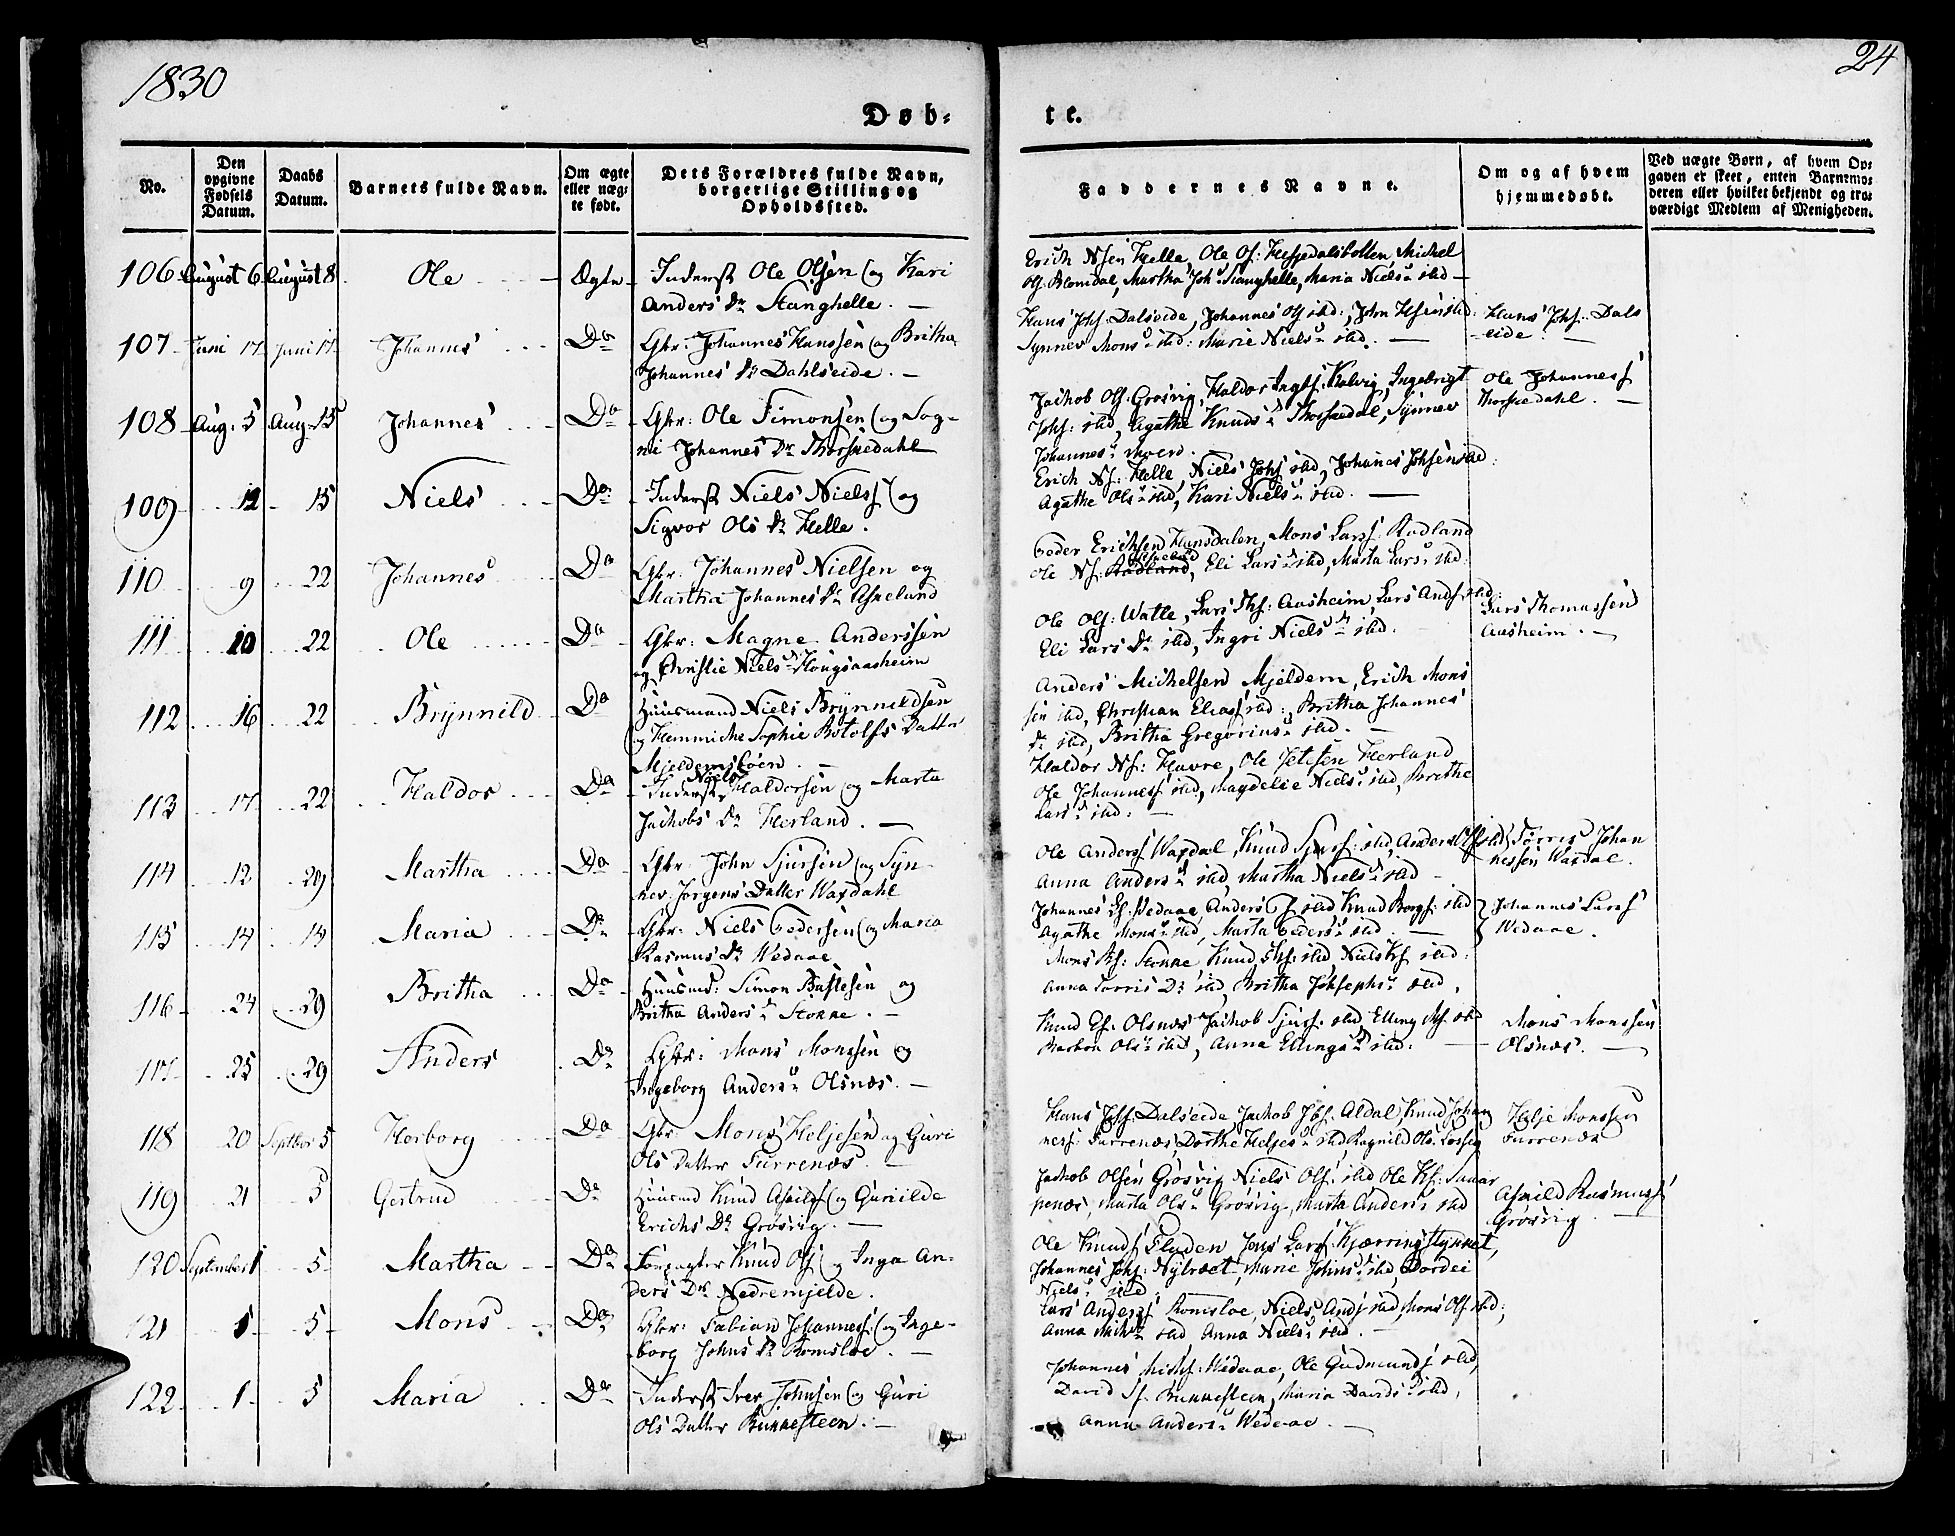 1830
24
Døb-
te.
No.
Den opgivne Fødsels Datum.
Daabs Datum.
Barnets fulde Navn.
Om ægte eller uægte født.
Dets Forældres fulde Navn, borgerlige Stilling og Opholdssted.
Faddernes Navne.
Om og af hvem hjemmedøbt.
Ved uægte Børn, af hvem Opgaven er skeet, enten Barnemoderen eller hvilket bekjendt og troværdigt Medlem af Menigheden.
106 August 6 August 8 Ole Ægte Inderst Ole Olsen og Kari
Anders Dr Stanghelle.
Erich Nsen Helle, Ole Os: Hesjedalsbotten, Michel
Os: Blomdal, Martha Joh Stanghelle, Maria Niels sted
107 Juni 17 Juni 17 Johannes Do Gbr: Johannes Hanssen og Britha
Johannes Dr Dahlseide.
Hans Johs: Dalseide, Johannes Os sted, John Hsen sted:
Synnev Mons sted: Marie Niels sted.
Hans Johs: Dals
eide.
108 Aug: 5 Aug 15 Johannes Do Gbr: Ole Simonsen og Sog-
ni Johannes Dr Thorskedahl
Jachob Ols: Grøsvig, Haldor Ingbs: Kalvig, Ingebrigt
Johs: sted, Agathe Knuds Thorskedal, Synnev
Johannes Moen.
Ole Johannes
Thorskedahl.
109 12 15 Niels Do Inderst Niels Niels og
Sigvor Ols Dr Helle.
Erich Ns: Helle, Niels Johs sted, Johanes Johsen sted:
Agathe Ols sted, Kari Niels sted.
110 9 22 Johannes Do Gbr: Johannes Nielsen og
Martha Johannes Dr Askeland
Peder Erichsen Hansdalen, Mons Lars: Radland
Ole Ns: Radland, Eli Lars sted, Marta Lars sted.
111 10 22 Ole Do Gbr: Magne Anderssen
og Christie Niels Hougsaasheim
Ole Ols: Watle, Lars Ths: Aasheim, Lars Ands sted:
Eli Lars Dr sted, Ingri Niels sted.
Lars Thomassen
Aasheim.
112 16 22 Brynnild Do Huusmand Niels Brynnildsen
og Hemmiche Sophie Botolfs Datter
Mjeldemsloen.
Anders Michelsen Mjeldem, Erich Mons
sen sted, Christian Elias sted:, Britha Johannes
Dr sted, Britha Gregorius sted.
113 17 22 Haldor Do Inderst Niels Haldorsen og Marta
Jachobs Dr Herland.
Haldor Ns: Havre, Ole Herland
Ole Johannes sted, Magdelie Niels sted, Brithe
Lars sted:
114 12 29 Martha Do Gbr: John Sjursen og Syn
nev Jørgens Datter Wasdahl
Ole Anders Wasdal, Knud Sjurs: sted, Anders sted
Anna Anders sted, Martha Niels sted
Torris Johan
nessen Wasdal.
115 14 14 Maria Do Gbr: Niels Pedersen og Maria
Rasmus Dr Wedaae
Johannes Ls: Vedaae, Anders sted Knud Borgs: sted
Agathe Mons sted, Marta Peders sted.
Johannes Lars
Wedaae.
116 24 29 Britha Do Huusmd: Simon Bastesen og
Britha Anders Stokke.
Mons Stokke Knud sted, Niels Ks sted:
Anna Torris Dr sted, Britha Johsephs sted,
117 25 29 Anders Do Gbr: Mons Monssen og
Ingeborg Anders Olsnæs.
Knud Es: Olsnæs Jachob Sjurs: sted, Elling Ms. sted
Barbra Ols sted, Anna Ellings sted.
Mons Monssen
Olsnæs.
118 20 Septbr 5 Herborg Do Gbr: Mons Heljesen og Guri
Ols Datter Furrenæs.
Hans Johs: Dalseide, Jachob Jbs: Aldal, Knud Johan
ness: Furrenæs, Dorthe Heljes sted, Ragnild Ols
Helje Monssen
Furrenæs
119 21 5 Gertrud Do Huusmd Knud Askilds og Guriilde
Erichs Dr Grøsvig.
Jachob Olsen Grøsvig Niels Ols: sted Ole Ks:
penæs, Marta Ols Grøsvig, Marta Anders sted
Askild Rasmuss
Grøsvig
120 September 1 5 Martha Do Forpagter Knud Ols og Inga An-
ders Dr Nedremjelde.
Ole Knuds Fladen Jens Lars: Kjærringstykket,
Johannes Johs: Nybrøet, Marie Johns sted, Dordei
Niels sted
121 5 5 Mons Do Gbr: Fabian Johanness: og Inge-
borg Johns Dr Romsloe.
Lars Anders Romsloe, Niels Ands sted, Mons Ols sted;
Anna Michls sted Anna Niels sted.
122 1 5 Maria Do Inderst Iver Johnsen og Guri
Ols Datter Bukkesteen.
Johannes Michs: Wedaae, Ole Gudmunds sted,
David Bukkesteen, Maria Davids sted,
Anna Anders Wedaae.